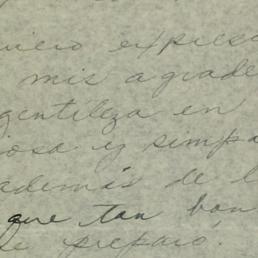 uiero expresa
mis agrade
gentileza en
osa y simpa
además de l
que tan bon
se preparó.